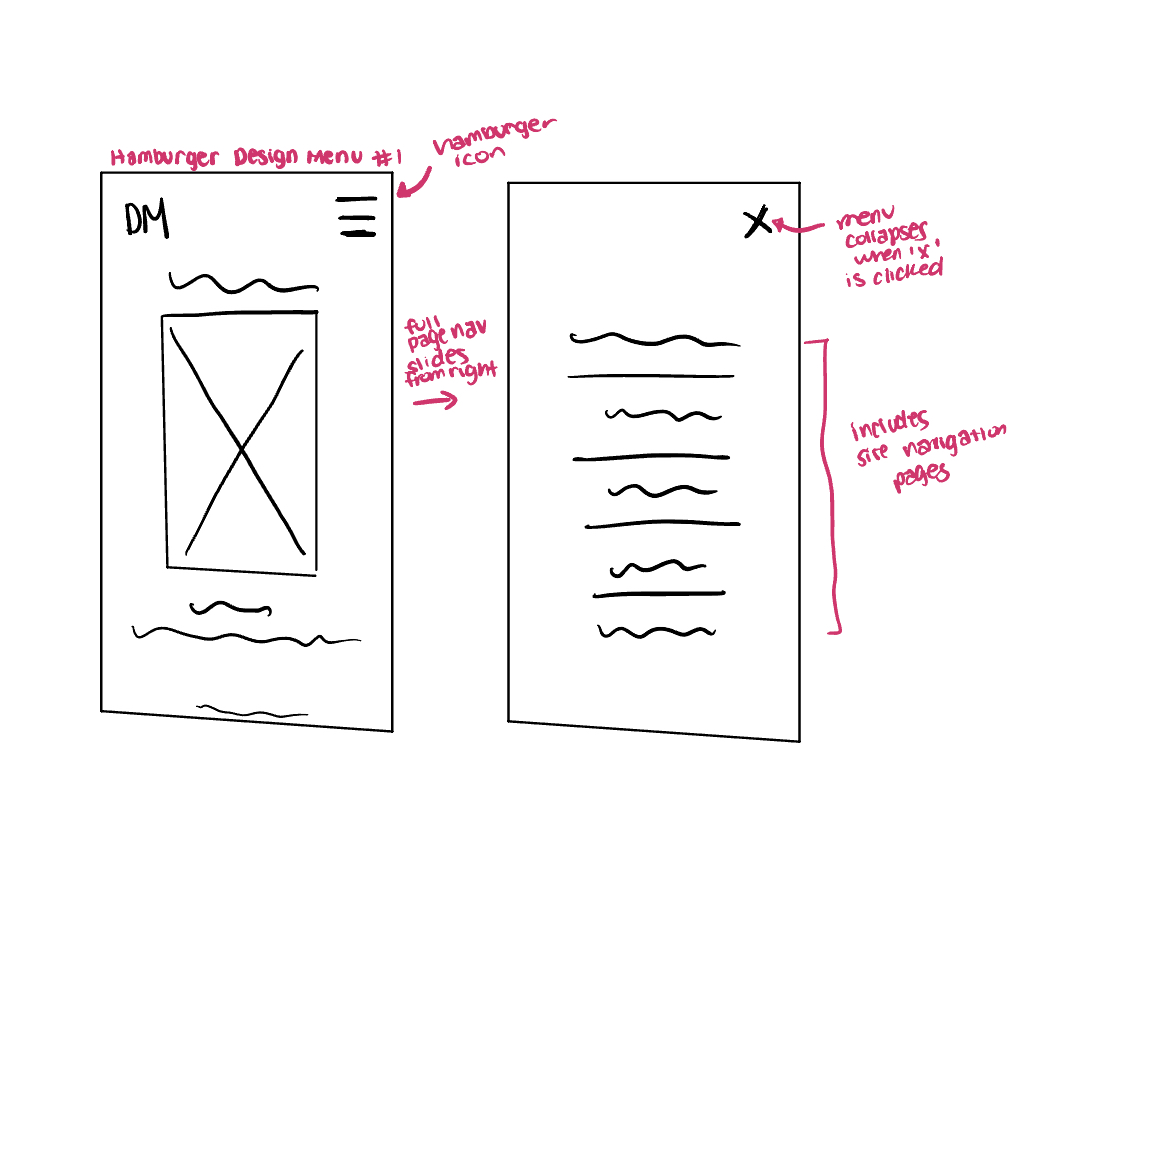 Hamburger Design Menu #1
hamburger
icon
DM
full
page nav
slides
from right
X
menu
collapses
when 'x'
is clicked
includes
site navigation
pages